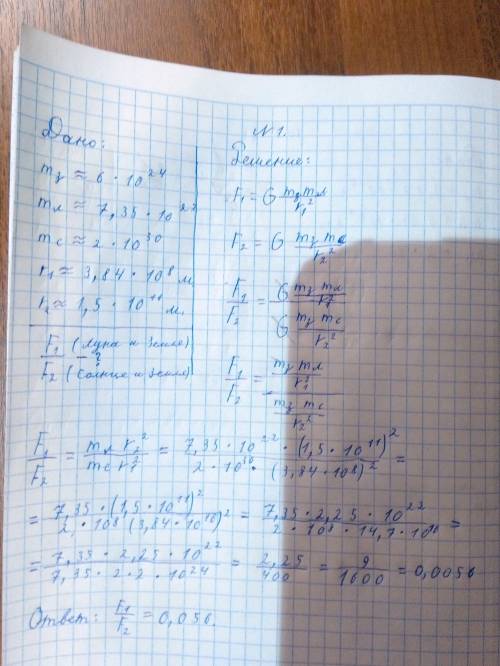 №1.
Дано:
Решение:
m₃ ≈ 6 · 10²⁴
mл ≈ 7,35 · 10²²
mc ≈ 2 · 10³⁰
r₁ ≈ 3,84 · 10⁸ м
r₂ ≈ 1,5 · 10¹¹ м.
F₁ (Луна и Земля)
— ?
F₂ (Солнце и Земля)
F₁ = G mз mл / r₁²
F₂ = G mз mc / r₂²
F₁/F₂ = (G mз mл / r₁²) / (G mз mc / r₂²)
F₁/F₂ = (mз mл / r₁²) / (mз mc / r₂²)
F₁/F₂ = mл r₂² / mc r₁² = 7,35 · 10²² · (1,5 · 10¹¹)² / 2 · 10³⁰ · (3,84 · 10⁸)² =
= 7,35 · (1,5 · 10¹¹)² / 2 · 10⁸ (3,84 · 10¹⁰)² = 7,35 · 2,25 · 10²² / 2 · 10⁸ · 14,7 · 10¹⁶ =
= 7,35 · 2,25 · 10²² / 7,35 · 2 · 2 · 10²⁴ = 2,25 / 400 = 9 / 1600 = 0,0056
Ответ: F₁/F₂ = 0,056.